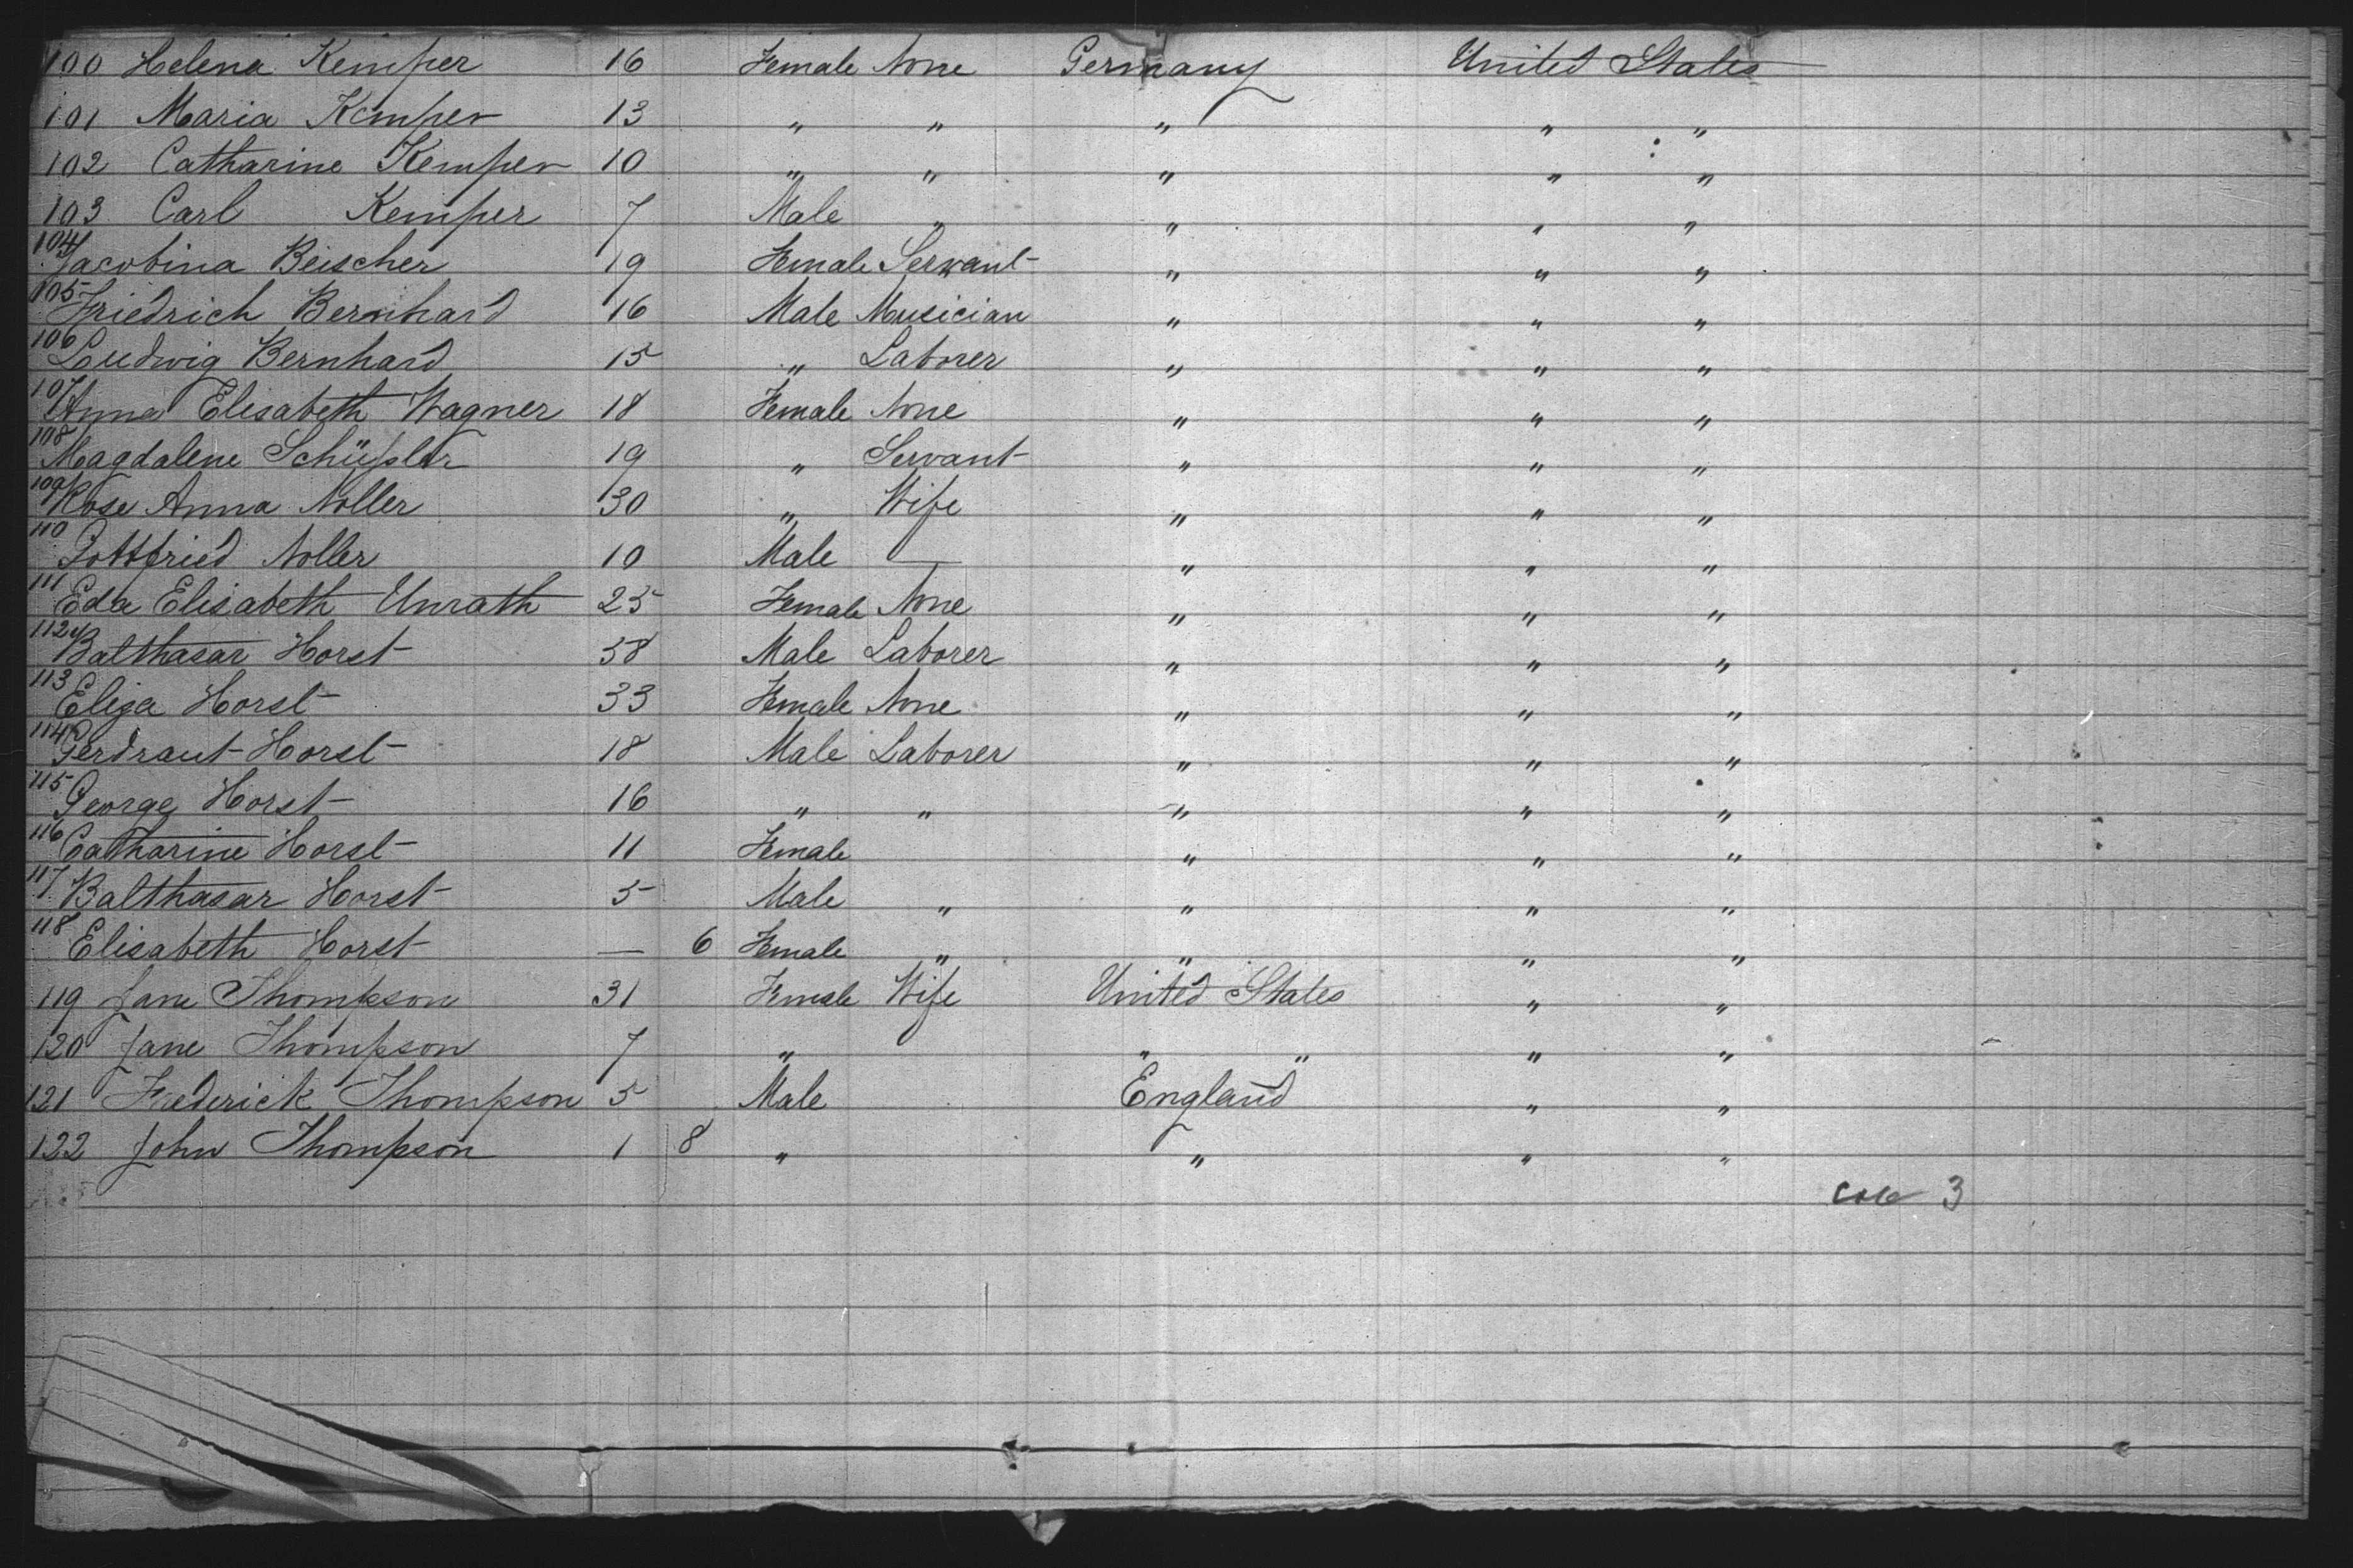 100 Helena Kemper 16 Female None Germany United States
101 Maria Kemper 13 " " " " "
102 Catharine Kemper 10 " " " " "
103 Carl Kemper 7 Male " " " "
104 Jacobina Beischer 19 Female Servant " " "
105 Friedrich Bernhard 16 Male Musician " " "
106 Ludwig Bernhard 15 " Laborer " " "
107 Anna Elisabeth Wagner 18 Female None " " "
108 Magdalene Schüßler 19 " Servant " " "
109 Rose Anna Noller 30 " Wife " " "
110 Gottfried Noller 10 Male — " " "
111 Eda Elisabeth Unrath 25 Female None " " "
112 Balthasar Horst 58 Male Laborer " " "
113 Eliza Horst 33 Female None " " "
114 Gerdraut Horst 18 Male Laborer " " "
115 George Horst 16 " " " " "
116 Catharine Horst 11 Female " " "
117 Balthasar Horst 5 Male " " " "
118 Elisabeth Horst — 6 Female " " " "
119 Jane Thompson 31 Female Wife United States " "
120 Jane Thompson 7 " " " " "
121 Frederick Thompson 5 Male England " "
122 John Thompson 1 8 " " " "
3